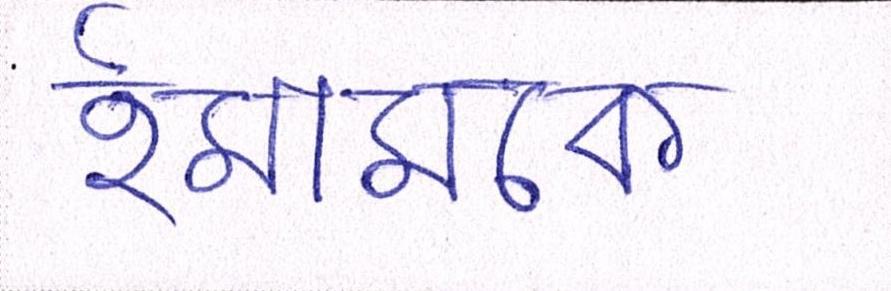 ইমামকে